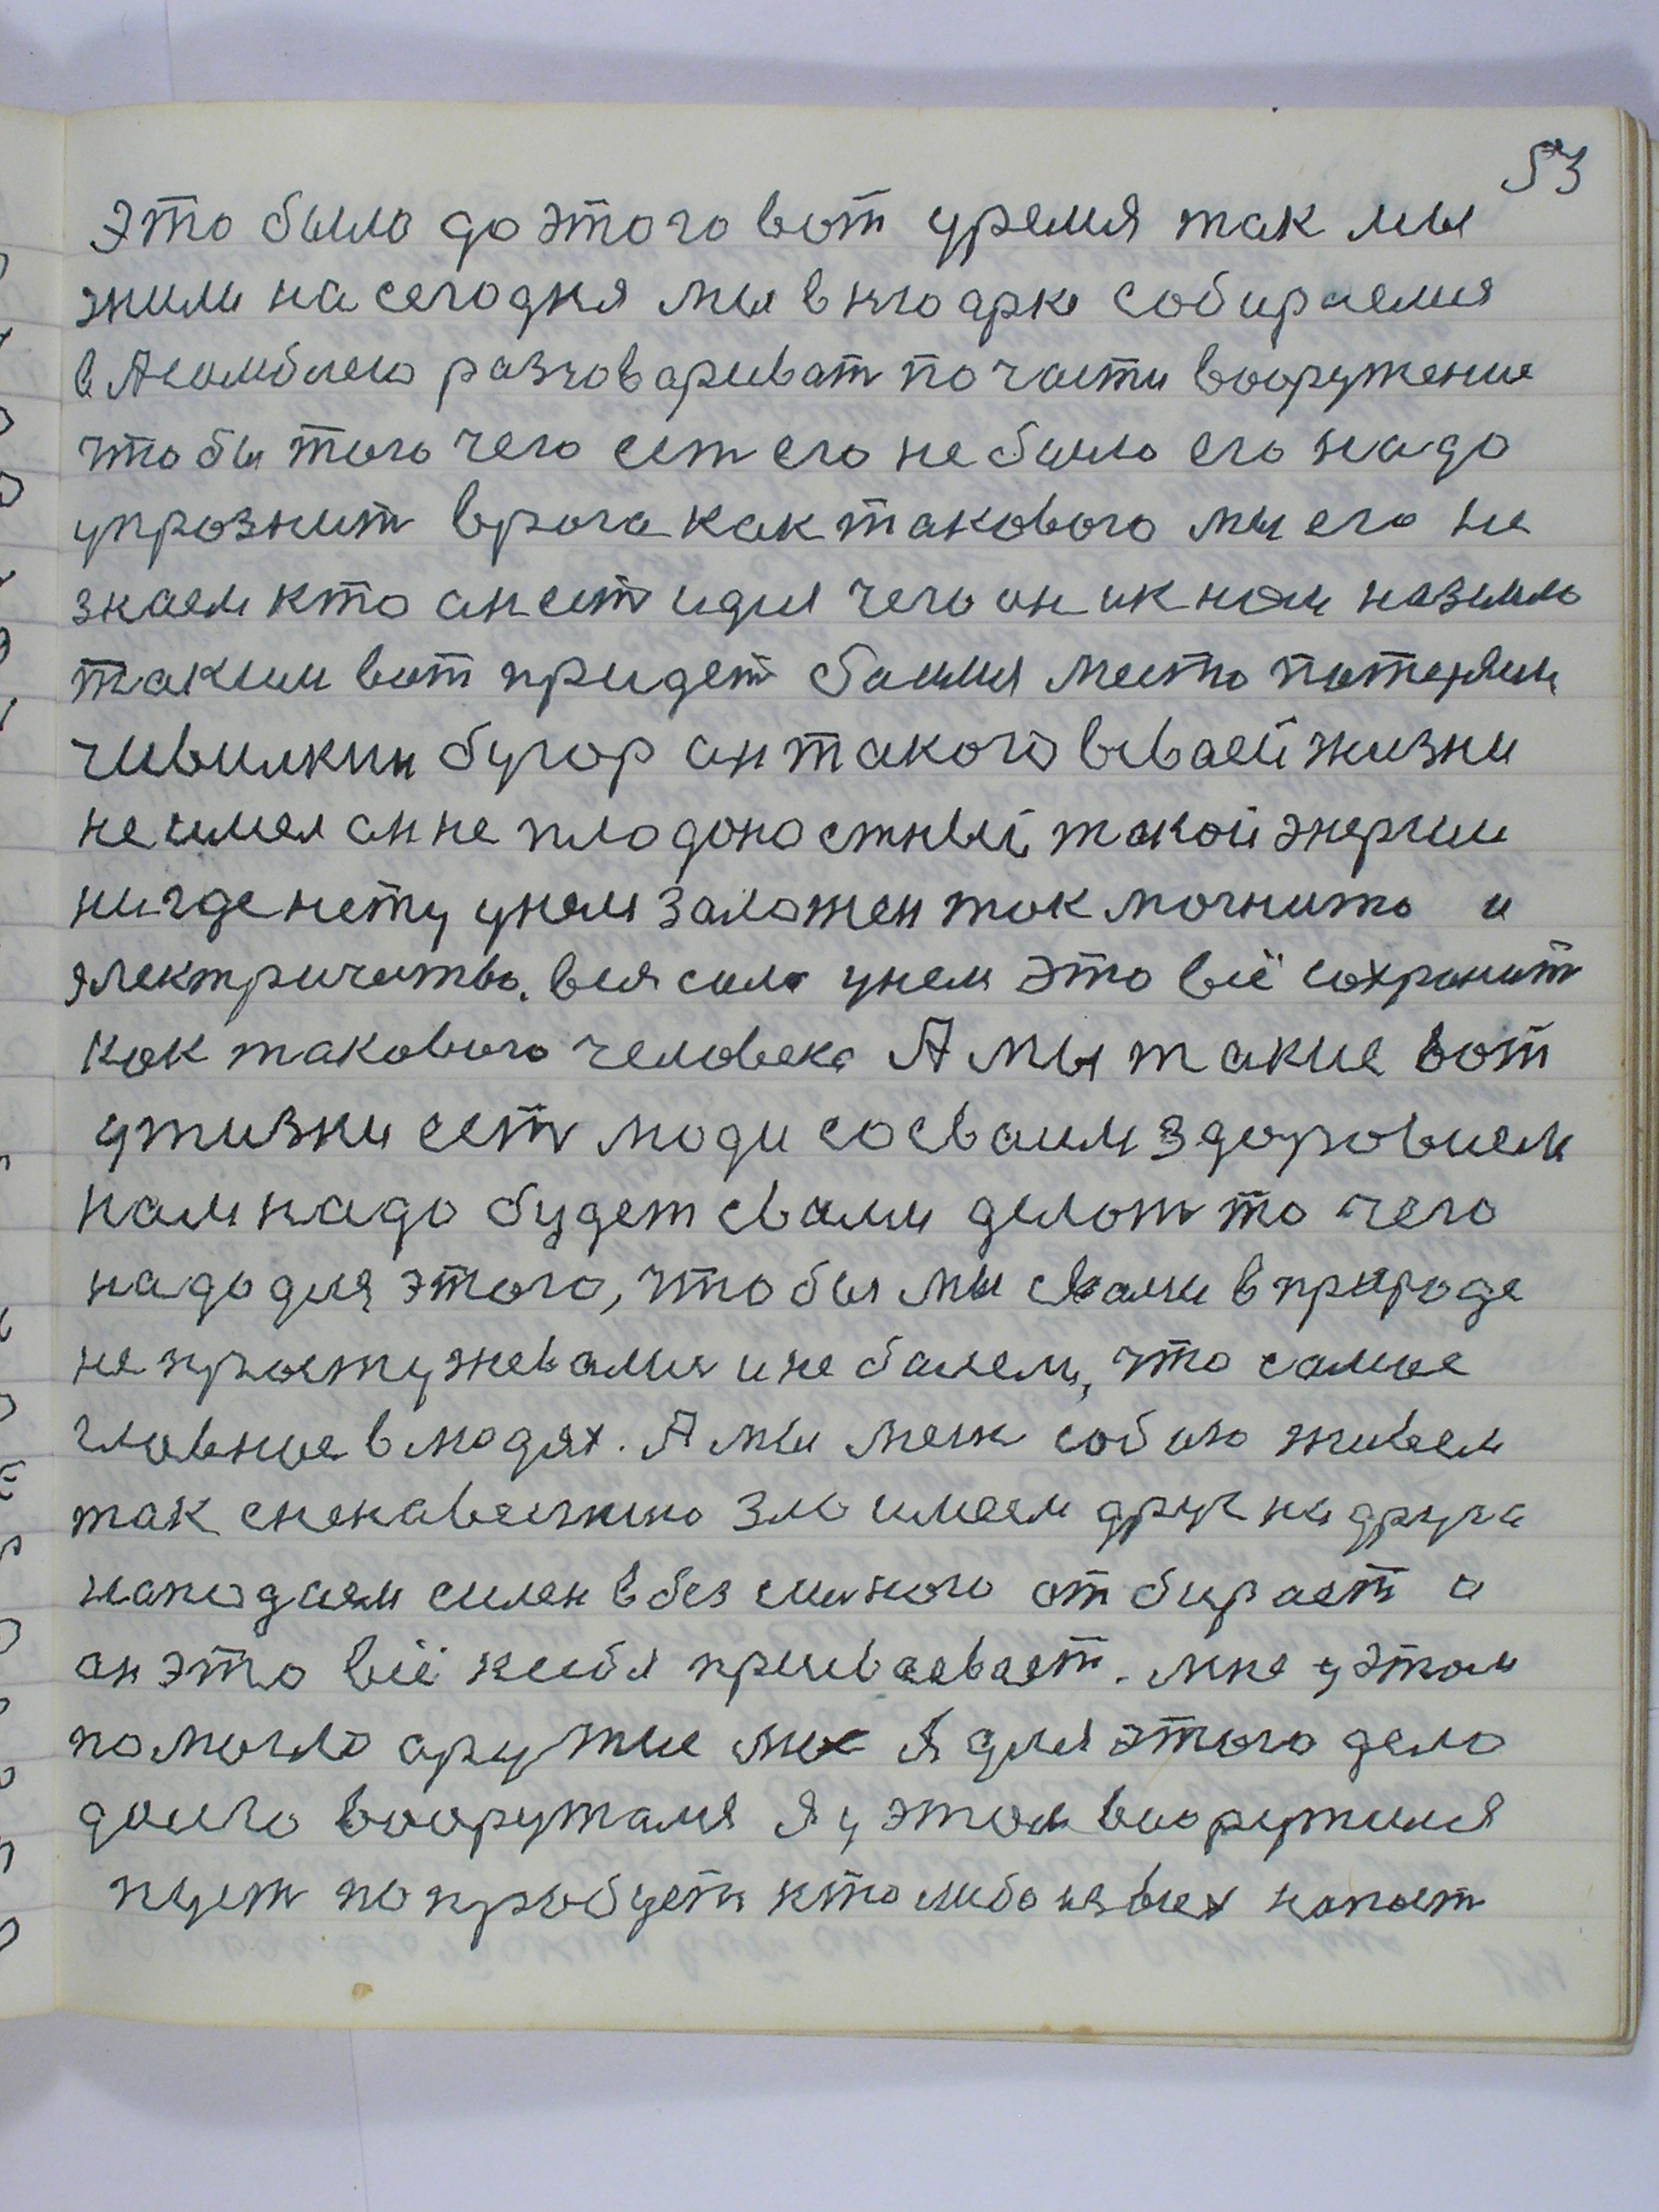 53
Это было до этого вот уремя так мы
жили на сегодня мы в нюорке собираемся
в Асомблею разговариват по части вооружение
чтобы того чего ест его не было его надо
упрознит врага как такового мы его не
знаем кто ан ест и для чего он и к нам
таким вот придет башия место потеряим
чивилкин бугор ан такого в сваей жизни
не имел ан не плодоностный такой энергии
ни где нету унем заложен ток могнито и
электричество. вся сила унем это всё сохранит
как такового человека А мы такие вот
утизки ест люди со сваим здоровием
нам надо будет свами делат то чего
надо для этого, чтобы мы свами в природе
не простужевались и не балели, что самое
главное в людях. А мы меж собою живем
так с зло имеем друг на друга
нападаем силен в без сильного отбирает а
ан это всё ксибя присваевает. мне у этом
помогло аружие я для этого дело
долго вооружался я у этом вооружился
пуст попробует кто либо из всех напаст